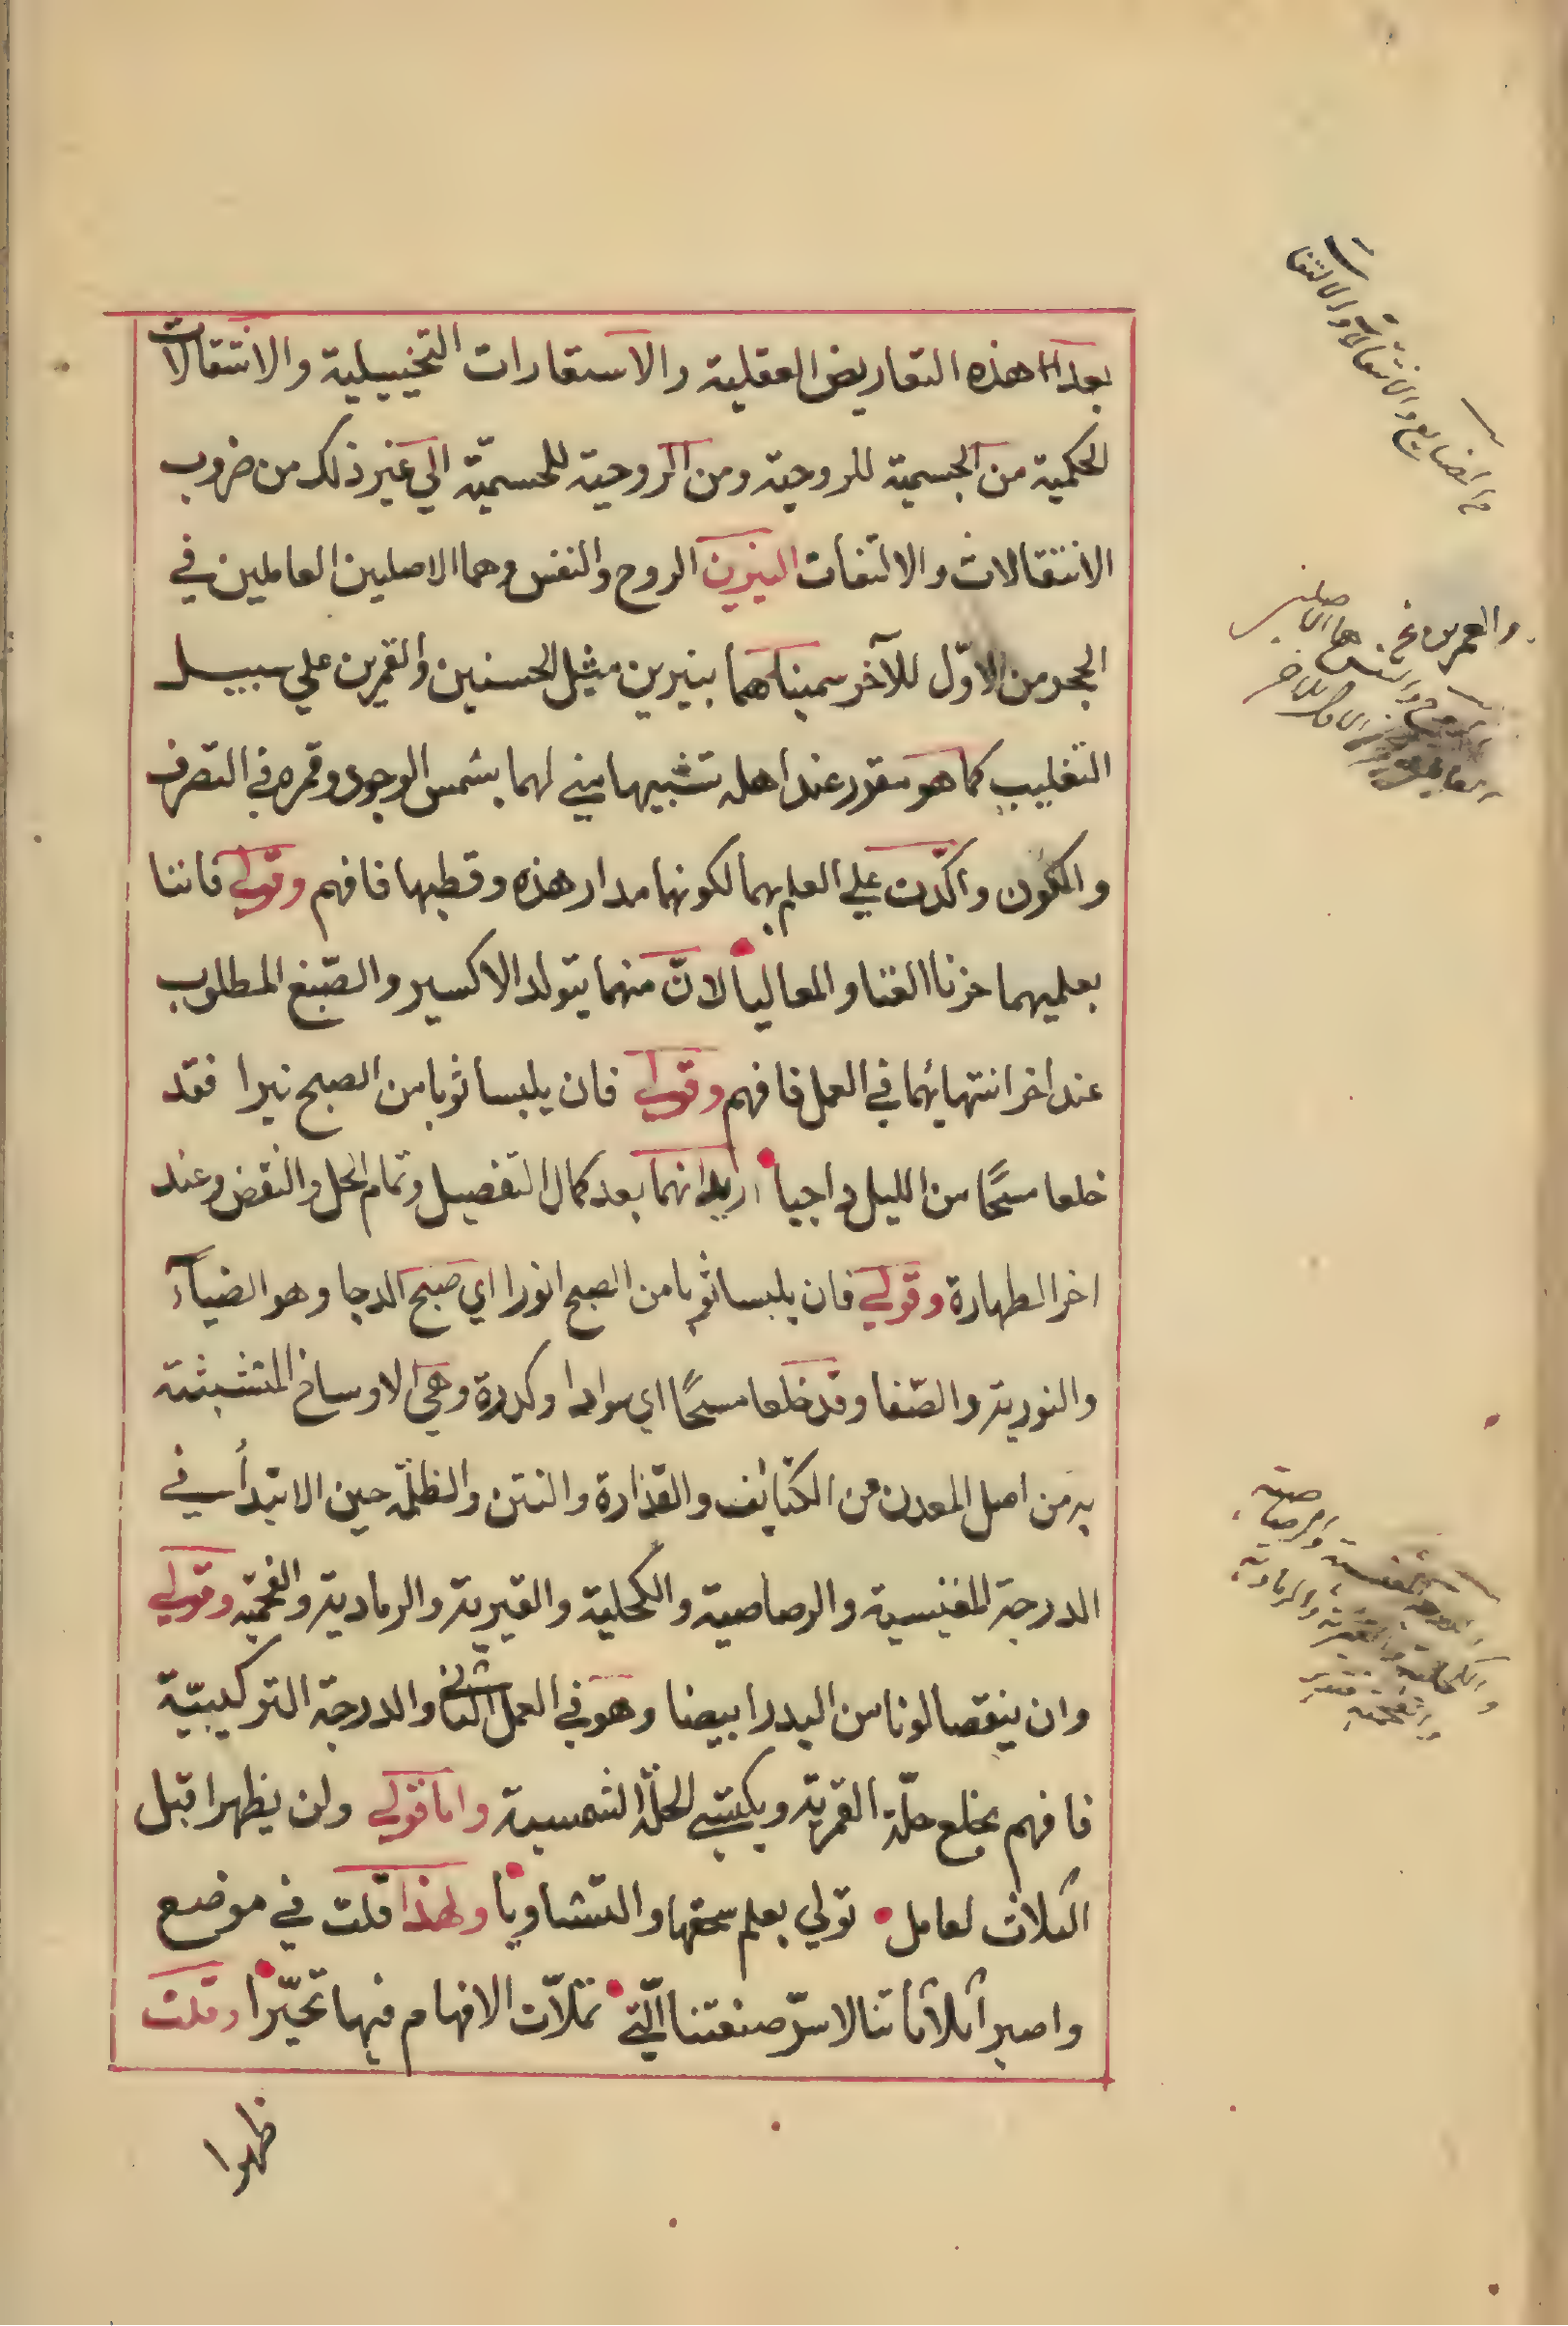 بعد هذه التعاريض العقلية والاستعارات التخييلية والانتقالات
الحكمية من الجسمية للروحية ومن الروحية للجسمية الي غير ذلك من ضروب
الانتقالات والالتفات النيرين الروح والنفس وهما الاصلين العاملين في
الحجر من الاوّل للآخر سميناهما بنيرين مثيل الحسنين والقمرين علي سبيل
التغليب كما هو مقرر عند اهله تشبيها مني لهما بشمس الوجود وقمره في التصرف
والكون واكّدت علي العلم بهما لكونهما مدار هذه وقطبها فافهم وقولي فاننا
بعلميهما حزنا الغنا والمعاليا لانّ منهما يتولد الاكسير والصّبغ المطلوب
عند اخر انتهايهما في العمل فافهم وقولي فان يلبسا ثوبا من الصبح نيرا فقد
خلعا مسحًا من الليل داجيا اريد انهما بعد كمال التفصيل وتمام الحل والنقض وعند
اخر الطهارة وقولي فان يلبسا ثوبا من الصبح انورا اي صبح الدجا وهو الضيآء
والنورية والصّفا وقد خلعا مسحًا اي سوادا وكدرة وهي الاوساخ المتشبثة
به من اصل المعدن من الكثايف والقذارة والنتن والظلمة حين الابتدأ في
الدرجة المغنيسية والرصاصية والكحلية والقيرية والرمادية والفحمية وقولي
وان ينقصا لونا من البدر ابيضا وهو في العمل الثاني والدرجة التركيبيّة
فافهم بخلع حلّة القمرية ويكتسي الحلة الشمسية واما قولي ولن يظهرا قبل
الثلاث لعامل تولي بعلم سحقها والتشاويا ولهذا قلت في موضع
واصبر ثلاثا تنالا سرّ صنعتنا الّتي تملّات الافهام فيها تحيّرا وقلت
ظهرا
والقمرين نخ
هما الاصلين